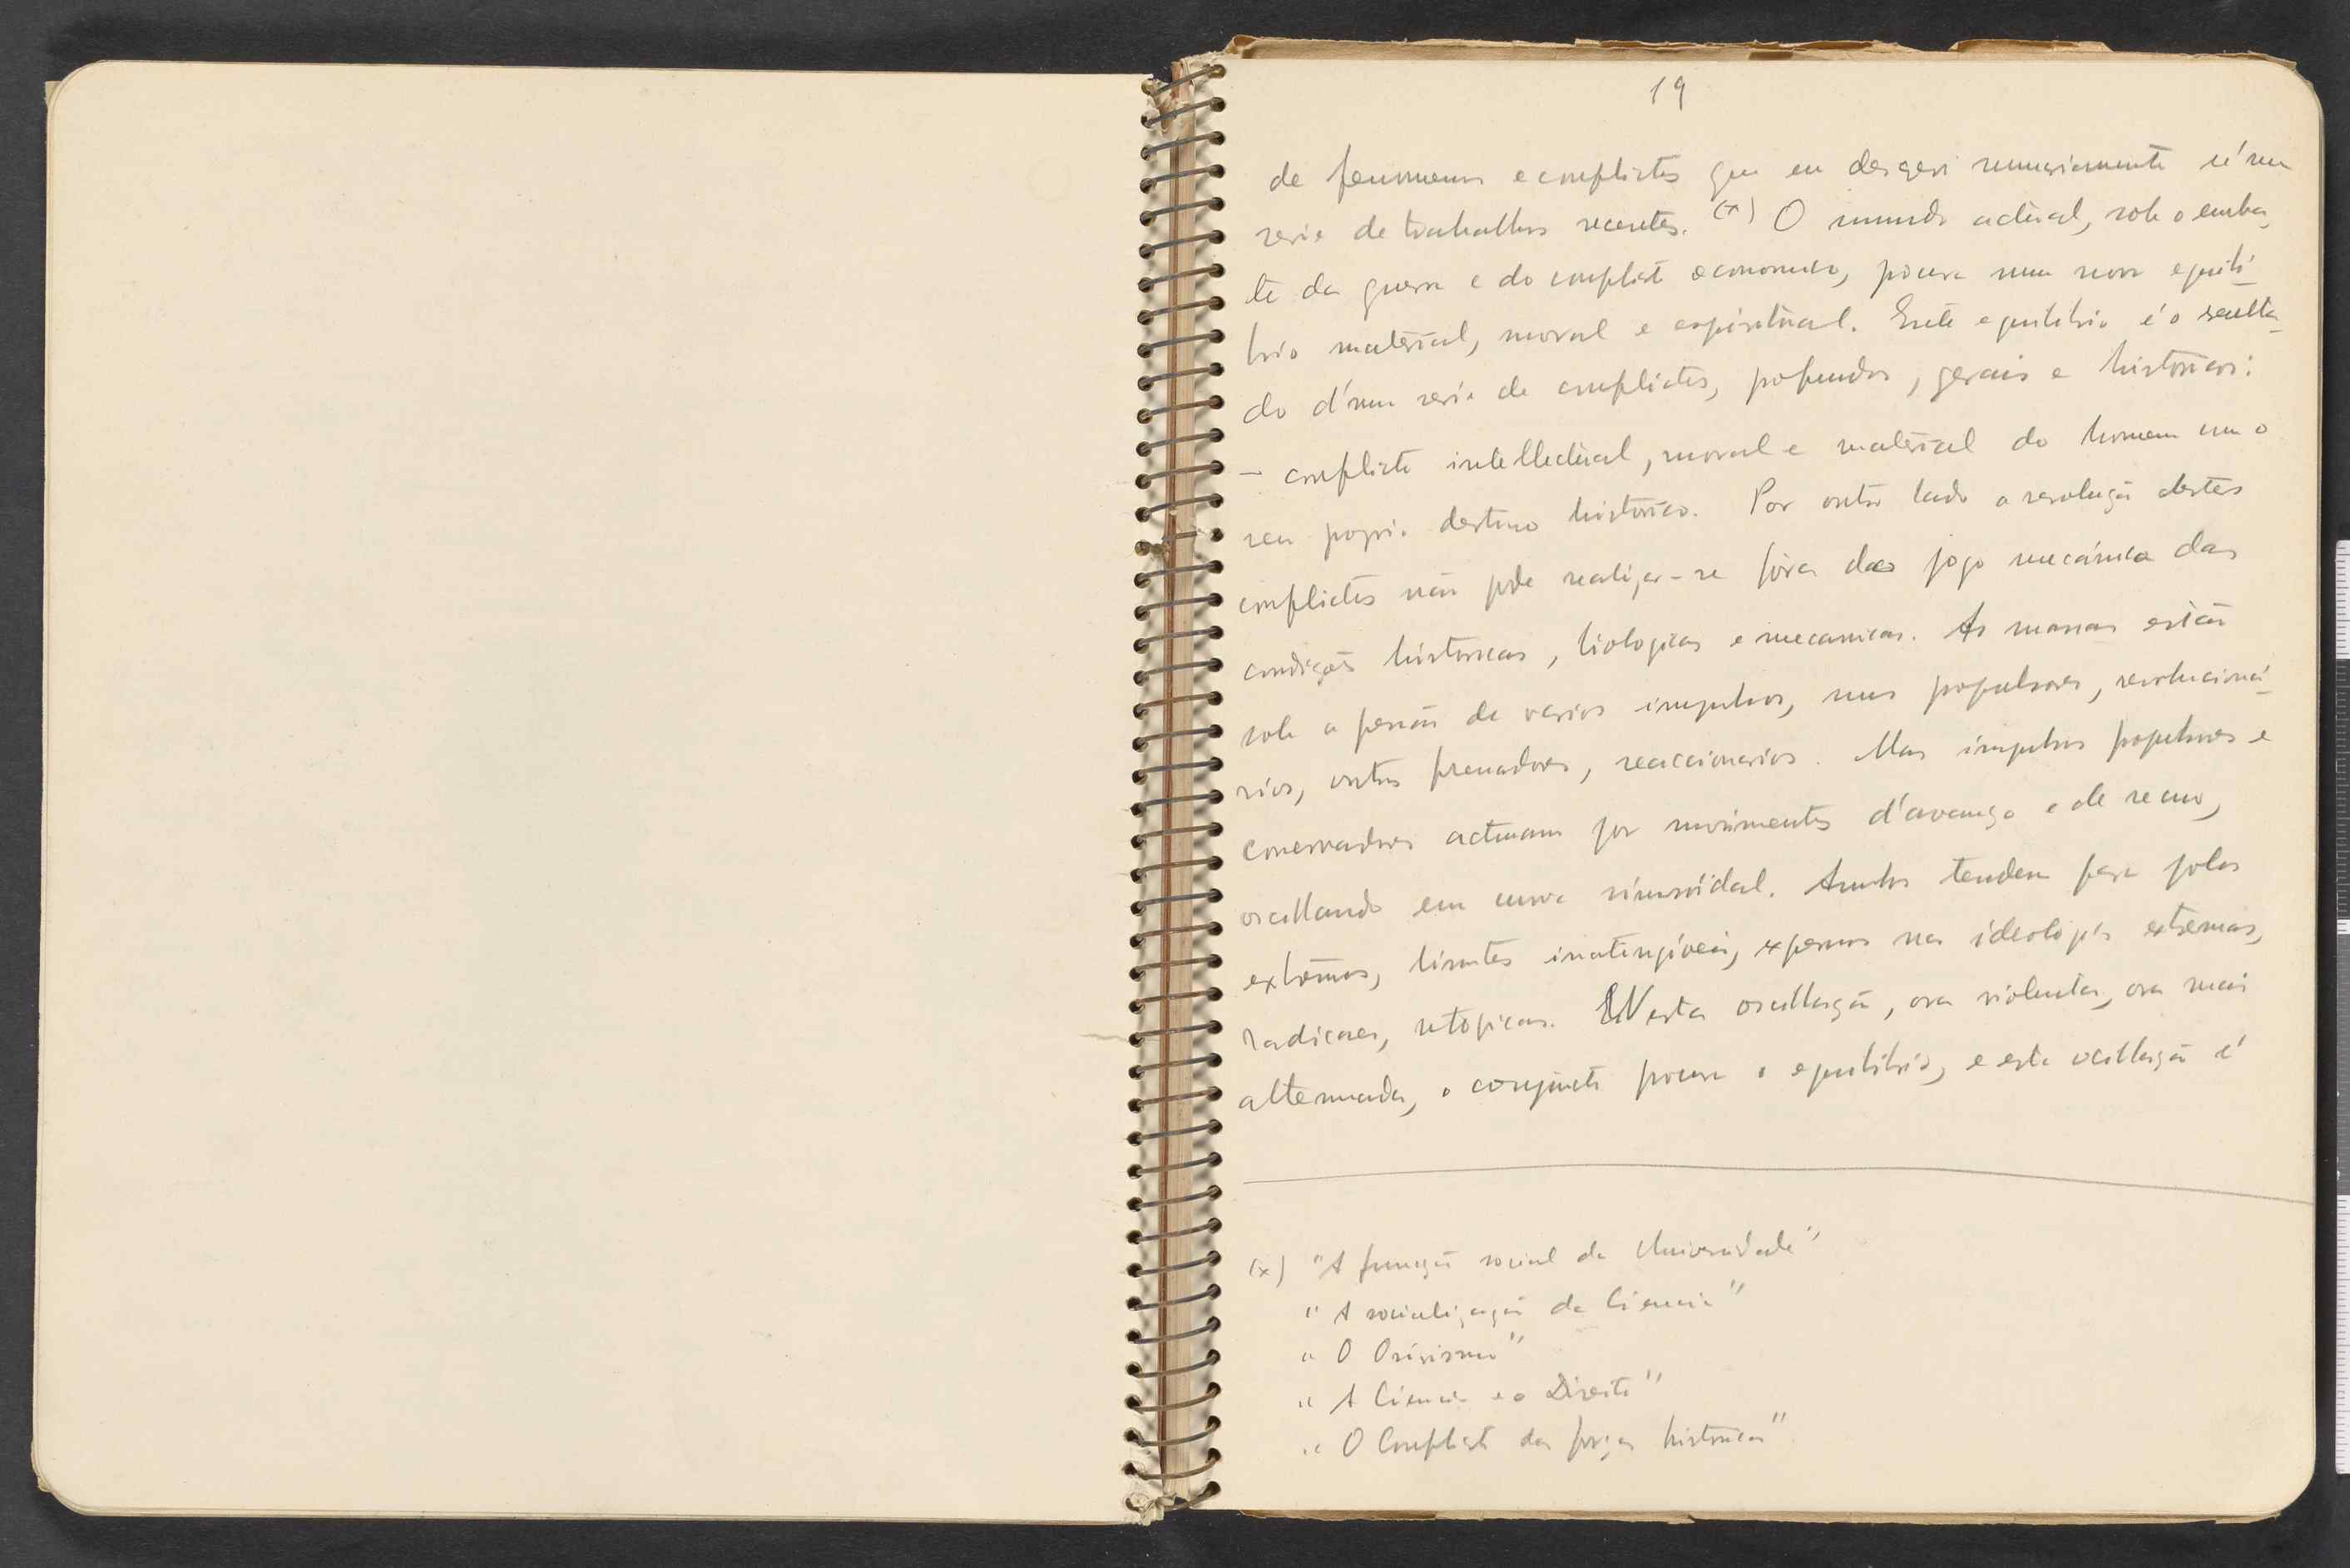 19
de fenomenos e conflictos que eu descrevi sumariamente n'uma
serie de trabalhos recentes. (x) O mundo actual, sob o emba-
te da guerra e do conflicto economico, procura um novo equili-
brio material, moral e espiritual. Este equilibrio é o resulta-
do d'uma serie de conflictos, profundos, gerais e historicos:
— conflicto intellectual, moral e material do homem com o
seu proprio destino historico. Por outro lado a resolução destes
conflictos não pode realizar-se fóra do jogo mecánico das
condições historicas, biologicas e mecanicas. As massas estão
sob a pressão de varios impulsos, uns propulsores, revolucioná-
rios, outros frenadores, reaccionarios. Mas impulsos propulsores e
conservadores actuam por movimentos d'avanço e de recuo,
oscillando em curva sinusoidal. Ambos tendem para polos
extremos, limites inatingíveis, expressos nas ideologias extremas,
radicaes, utopicas. Nesta oscillação, ora violenta, ora mais
attenuada, o conjuncto procura o equilibrio, e esta oscillação é
(x) "A função social da Universidade"
" A socialização da Ciencia"
" O Onirismo"
" A Ciencia e o Direito"
" O Conflicto das forças historicas"